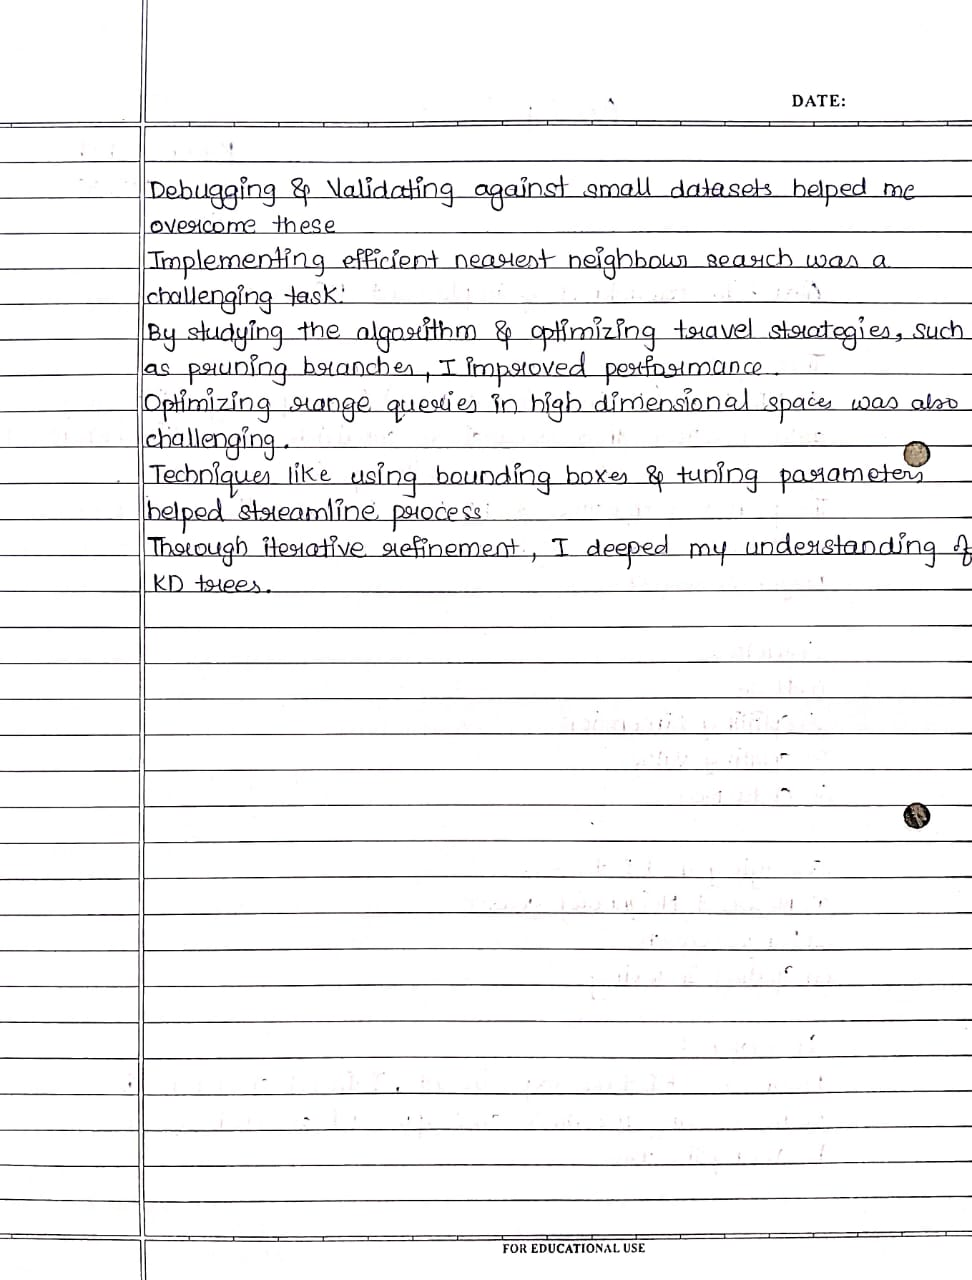 DATE:
Debugging & Validating against small datasets helped me
overcome these
Implementing efficient nearest neighbour search was a
challenging task.
By studying the algorithm & optimizing travel strategies, such
as pruning branches, I improved performance.
Optimizing range queries in high dimensional spaces was also
challenging.
Techniques like using bounding boxes & tuning parameters
helped streamline process
Thorough iterative refinement, I deeped my understanding of
KD trees.
FOR EDUCATIONAL USE